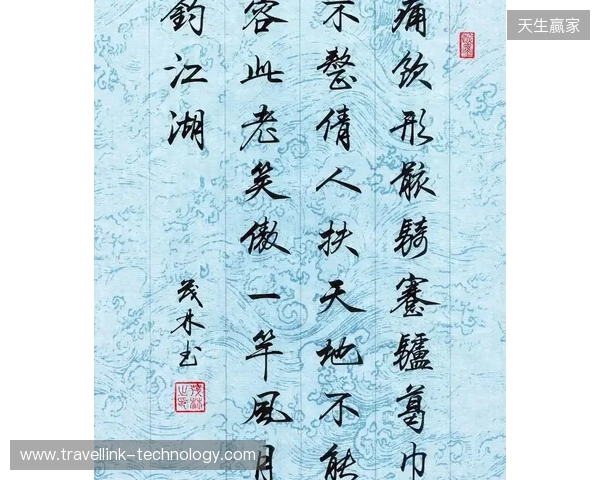 天生赢家
痛饮形骸騎蹇驢葛巾
不整倩人扶天地不能
容此老笑傲一竿風月
釣江湖
茂林书
www.travellink-technology.com